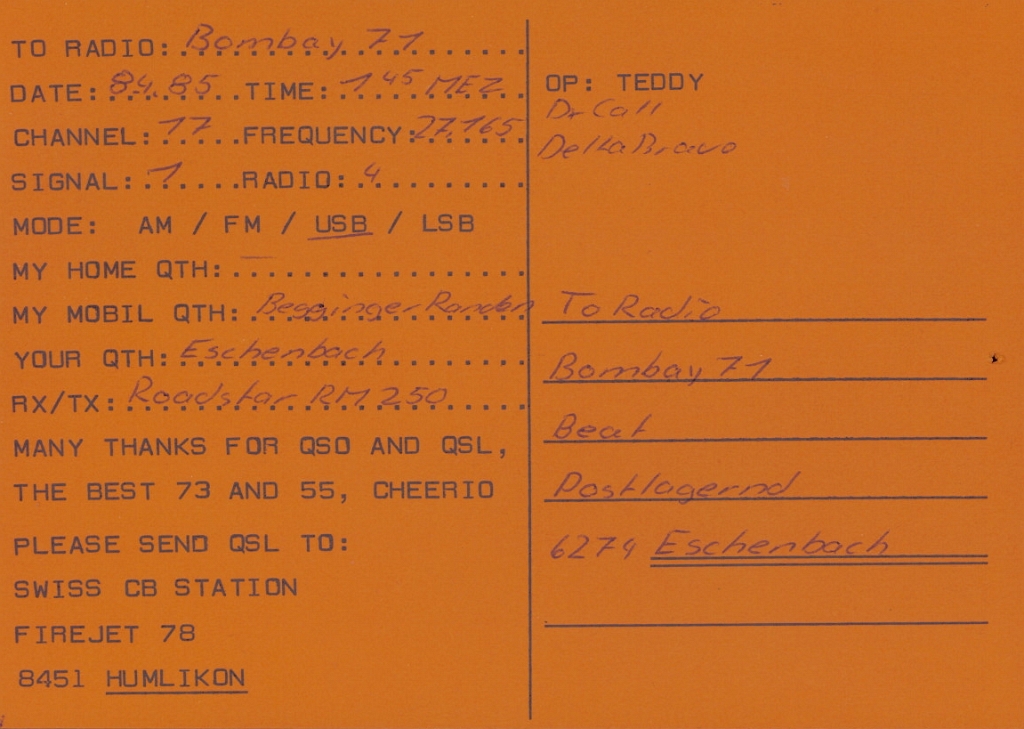 TO RADIO: Bombay 71
DATE: 8.4.85 TIME: 1 45 MEZ
CHANNEL: 17 FREQUENCY: 27,165
SIGNAL: 1 RADIO: 4
MODE: AM / FM / USB / LSB
MY HOME QTH:
MY MOBIL QTH: Begginger Randen
YOUR QTH: Eschenbach
RX/TX: Roadstar RM 250
MANY THANKS FOR QSO AND QSL,
THE BEST 73 AND 55, CHEERIO
PLEASE SEND QSL TO:
SWISS CB STATION
FIREJET 78
8451 HUMLIKON
OP: TEDDY
Dx Call
Delta Bravo
To Radio
Bombay 71
Beat
Postlagernd
6274 Eschenbach